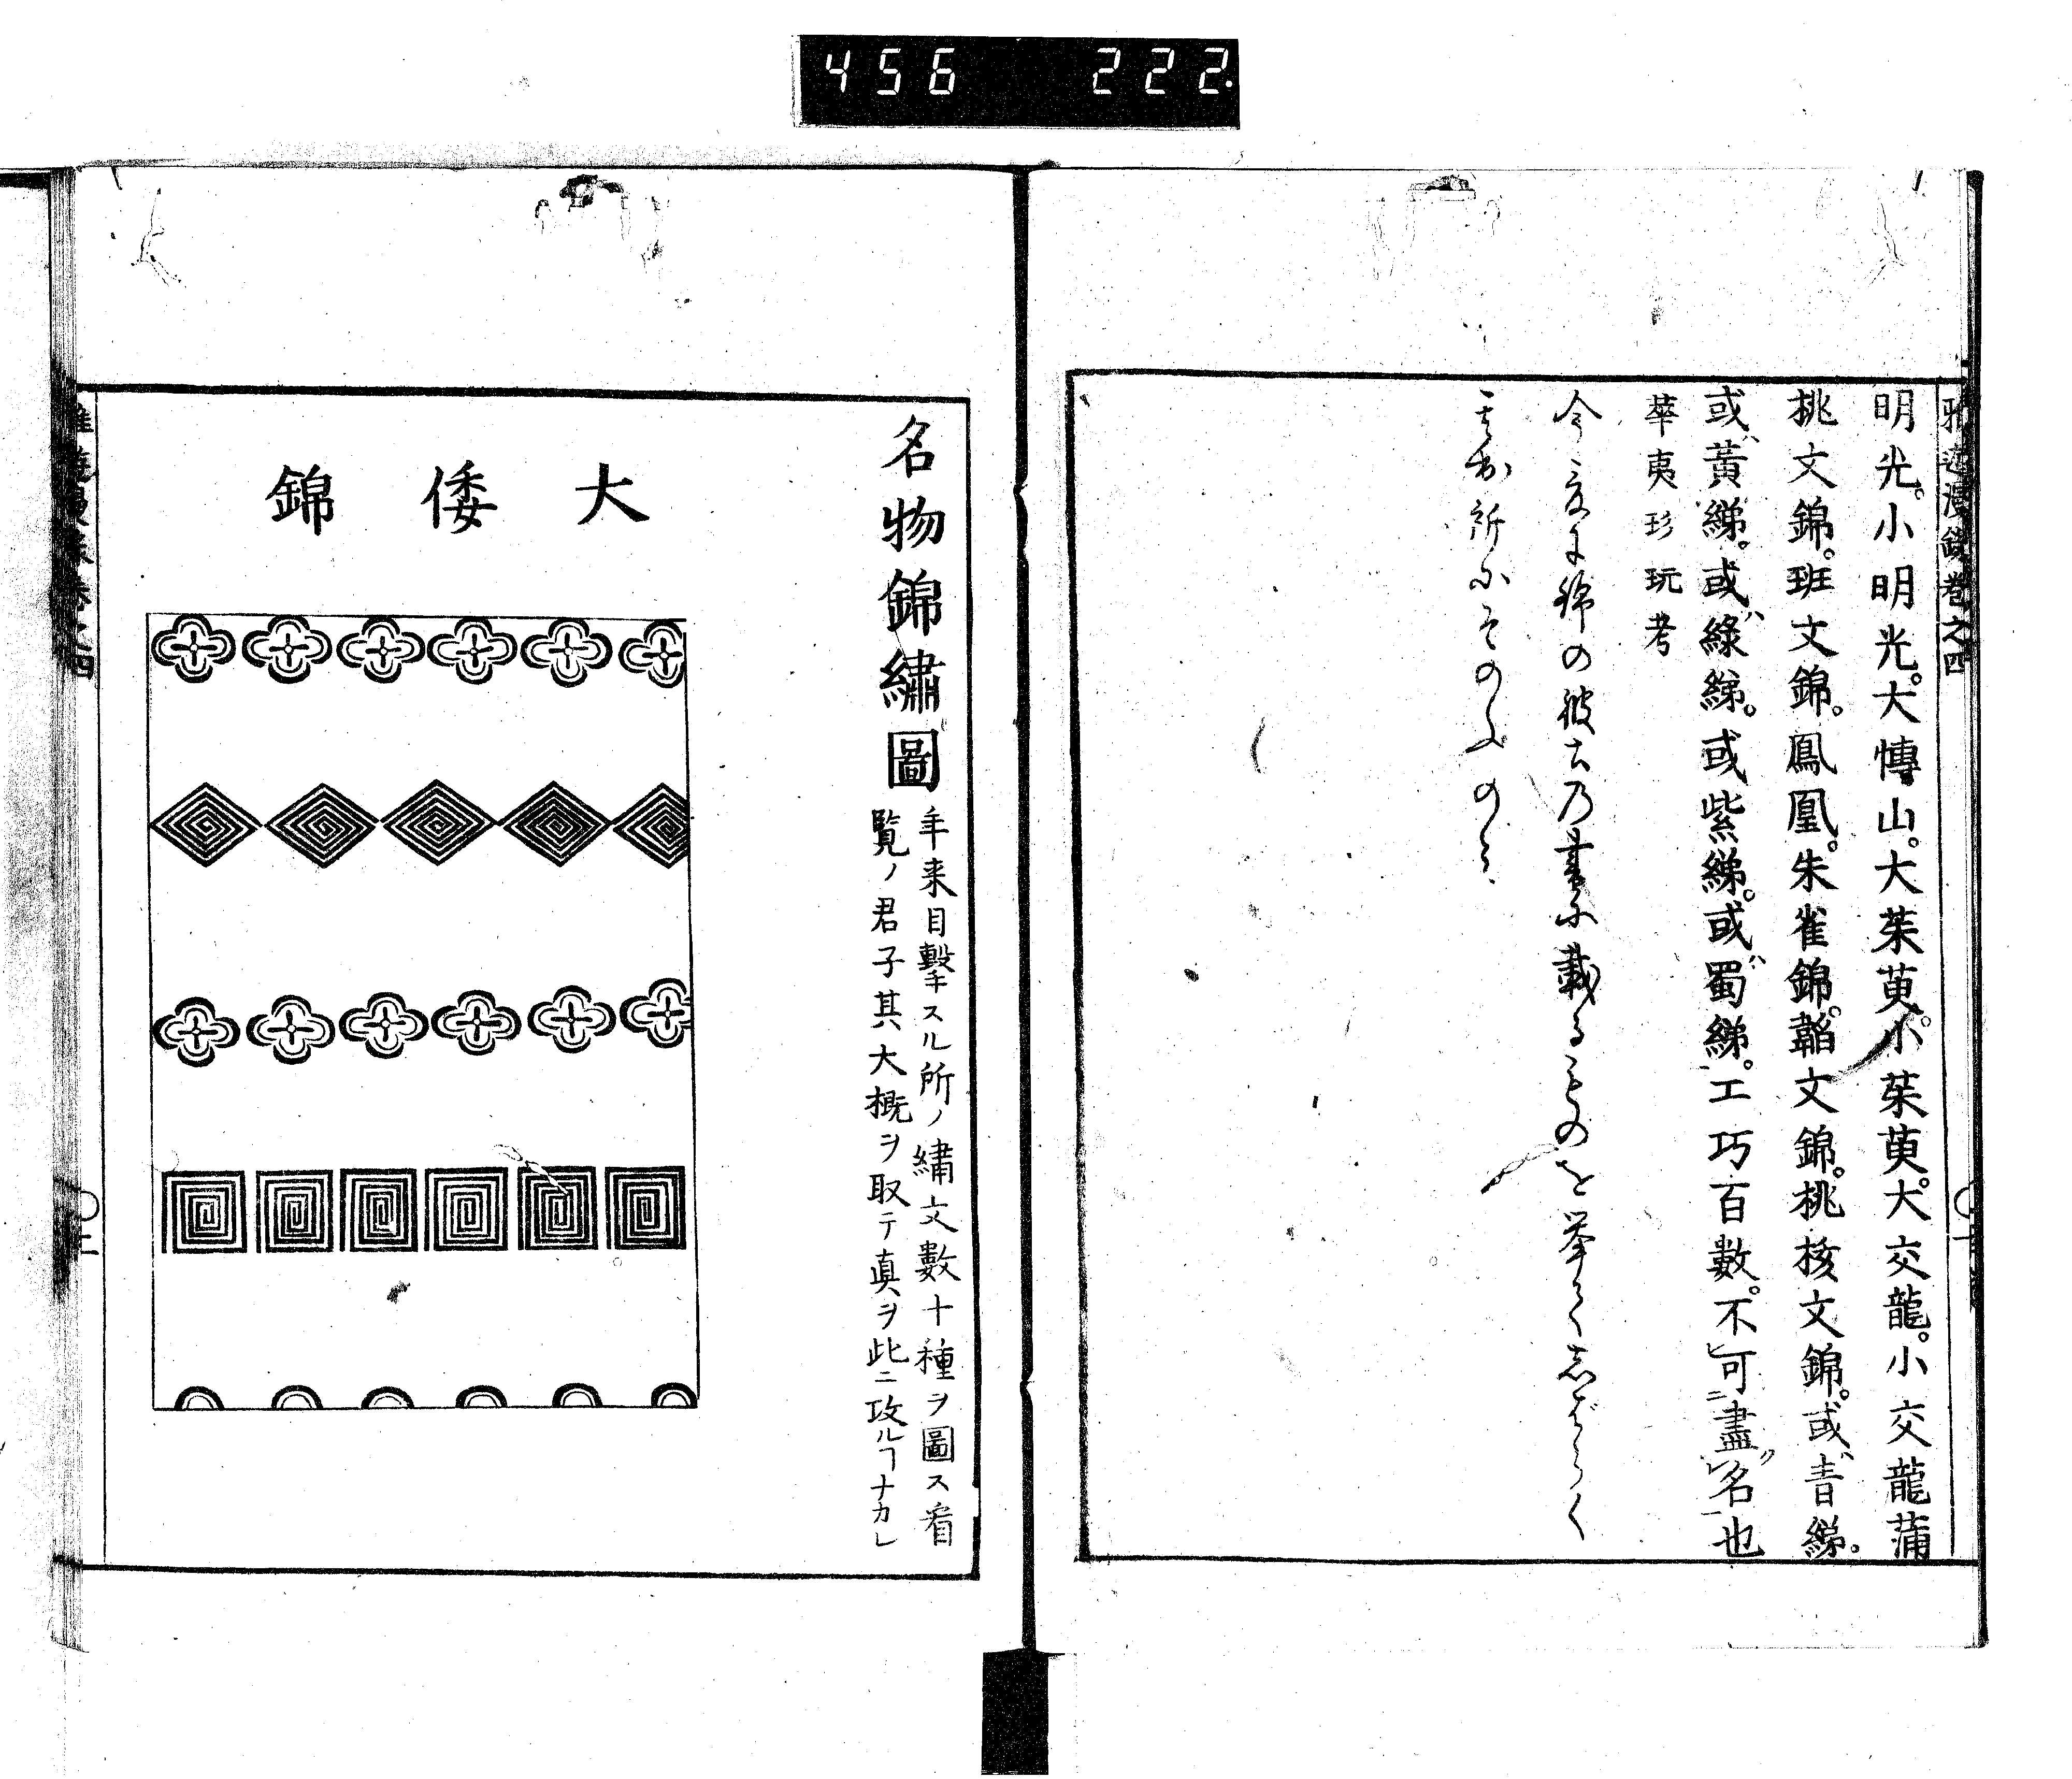 456 222
雅遊漫録卷之四
明光。小明光。大慱山。大茱萸。小茱萸。大交龍。小交龍蒲
桃文錦。班文錦。鳳凰。朱雀錦。韜文錦。桃核文錦。或ハ青綈。
或ハ黃綈。或ハ綠綈。或紫綈。或ハ蜀綈。工巧百數。不レ可ニ盡ク名一也
華夷珍玩考
今
錦の彼土乃書に載るものを挙てしばらく
名物錦繡圖
年来目撃スル所ノ繡文數十種ヲ圖ス看
覧ノ君子其大概ヲ取テ真ヲ此ニ攻ルヿナカレ
大倭錦